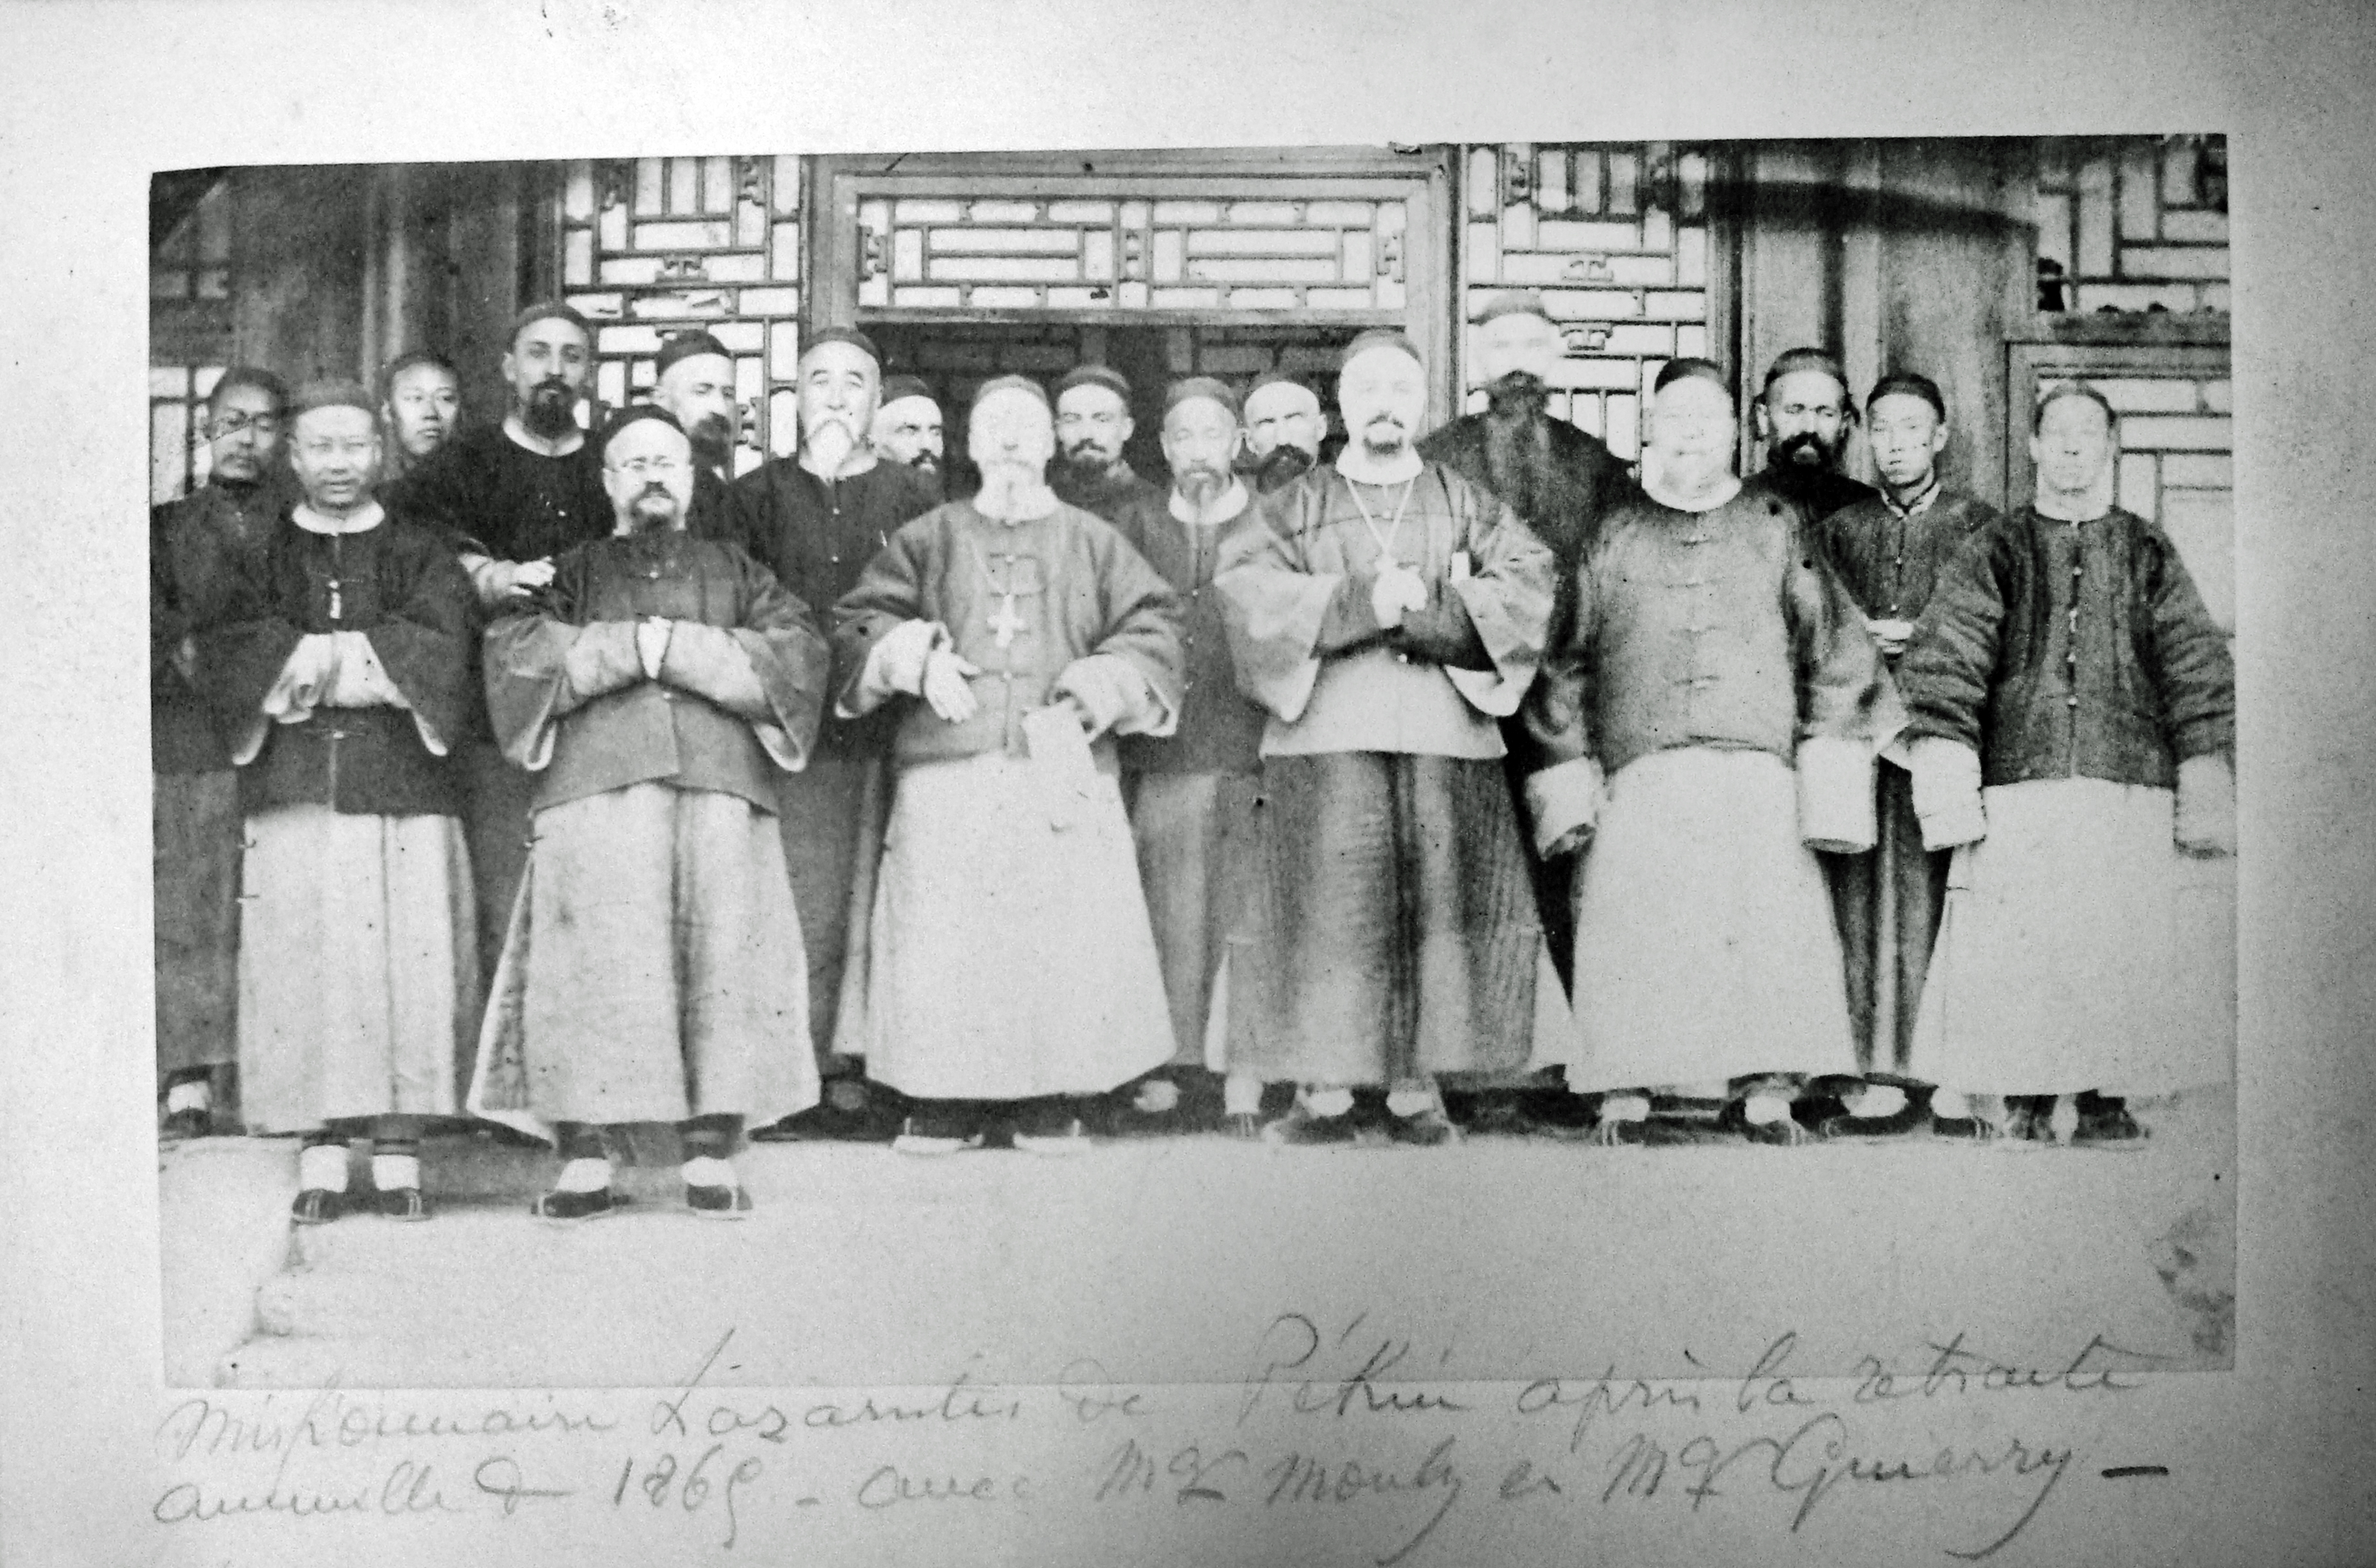 Missionnaires Lazaristes de Pékin après la retraite
annuelle de 1869 - avec Mgr Mouly et Mgr Guierry -